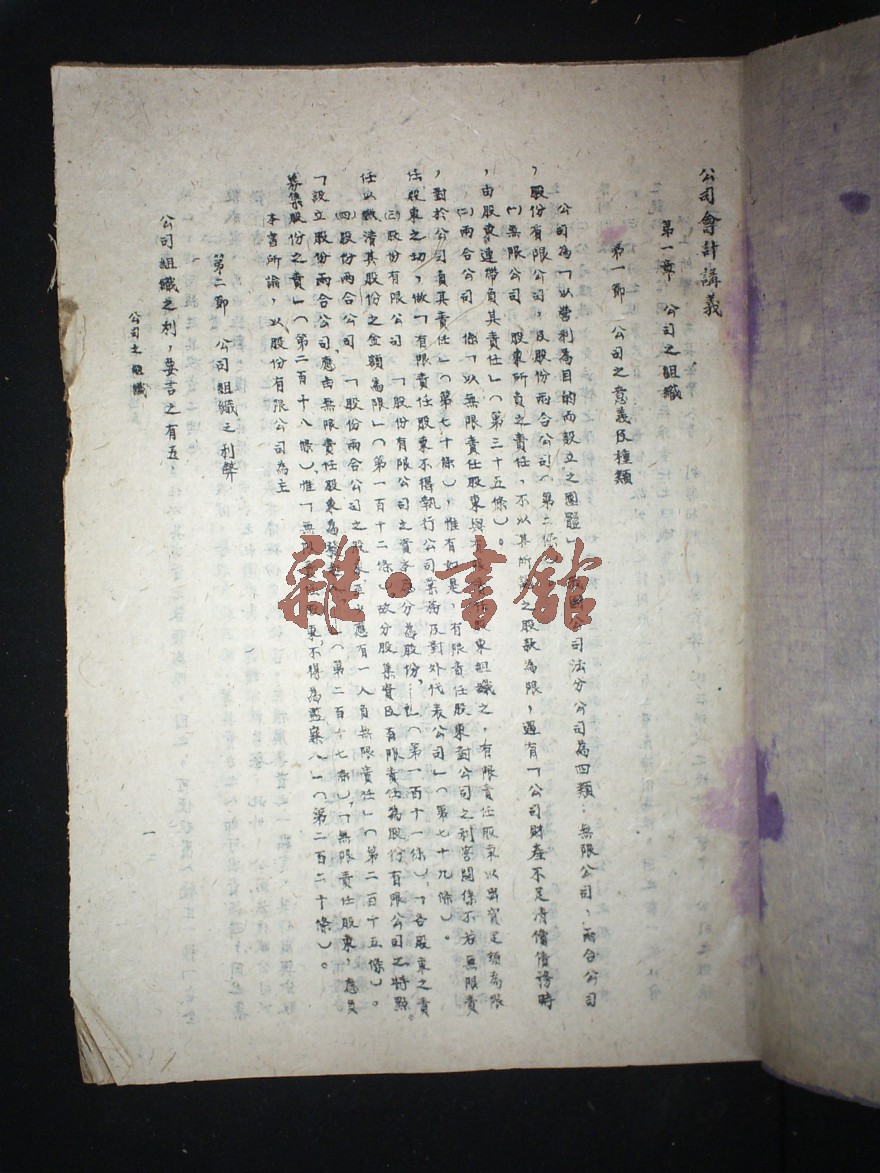 公司會計講義
第一章　公司之組織
第一節　公司之意義及種類
公司為「以營利為目的而設立之團體」我國公司法分公司為四類：無限公司，兩合公司
，股份有限公司，及股份兩合公司（第二條
㈠無限公司　股東所負之責任，不以其所之股款為限，遇有「公司財產不足清償債務時
，由股東連帶負其責任」（第三十五條）。
㈡兩合公司　係「以無限責任股東與有限責任股東組織之，有限責任股東以出資定額為限
，對於公司負其責任」（第七十條），惟有如是，有限責任股東對公司之利害關係不若無限責
任股東之切，故「有限責任股東不得執行公司業務及對外代表公司」（第七十九條）。
㈢股份有限公司　「股份有限公司之資本應分為股份，（第一百十一條），「各股東之責
任以繳清其股份之金額為限」（第一百十二條故分股集資及有限責任為股份有限公司之特點。
㈣股份兩合公司　「股份兩合公司之股東，至少應有一人負無限責任」（第二百十五條）。
「設立股份兩合公司應由無限責任股東為發起人」（第二百十七條），「無限責任股東，應負
募集股份之責」（第二百十八條），惟「無限責任股東，不得為監察人」（第二百二十條）。
本書所論，以股份有限公司為主
第二節　公司組織之利弊
公司組織之利，要言之有五，
公司之組織
一
雜·書館